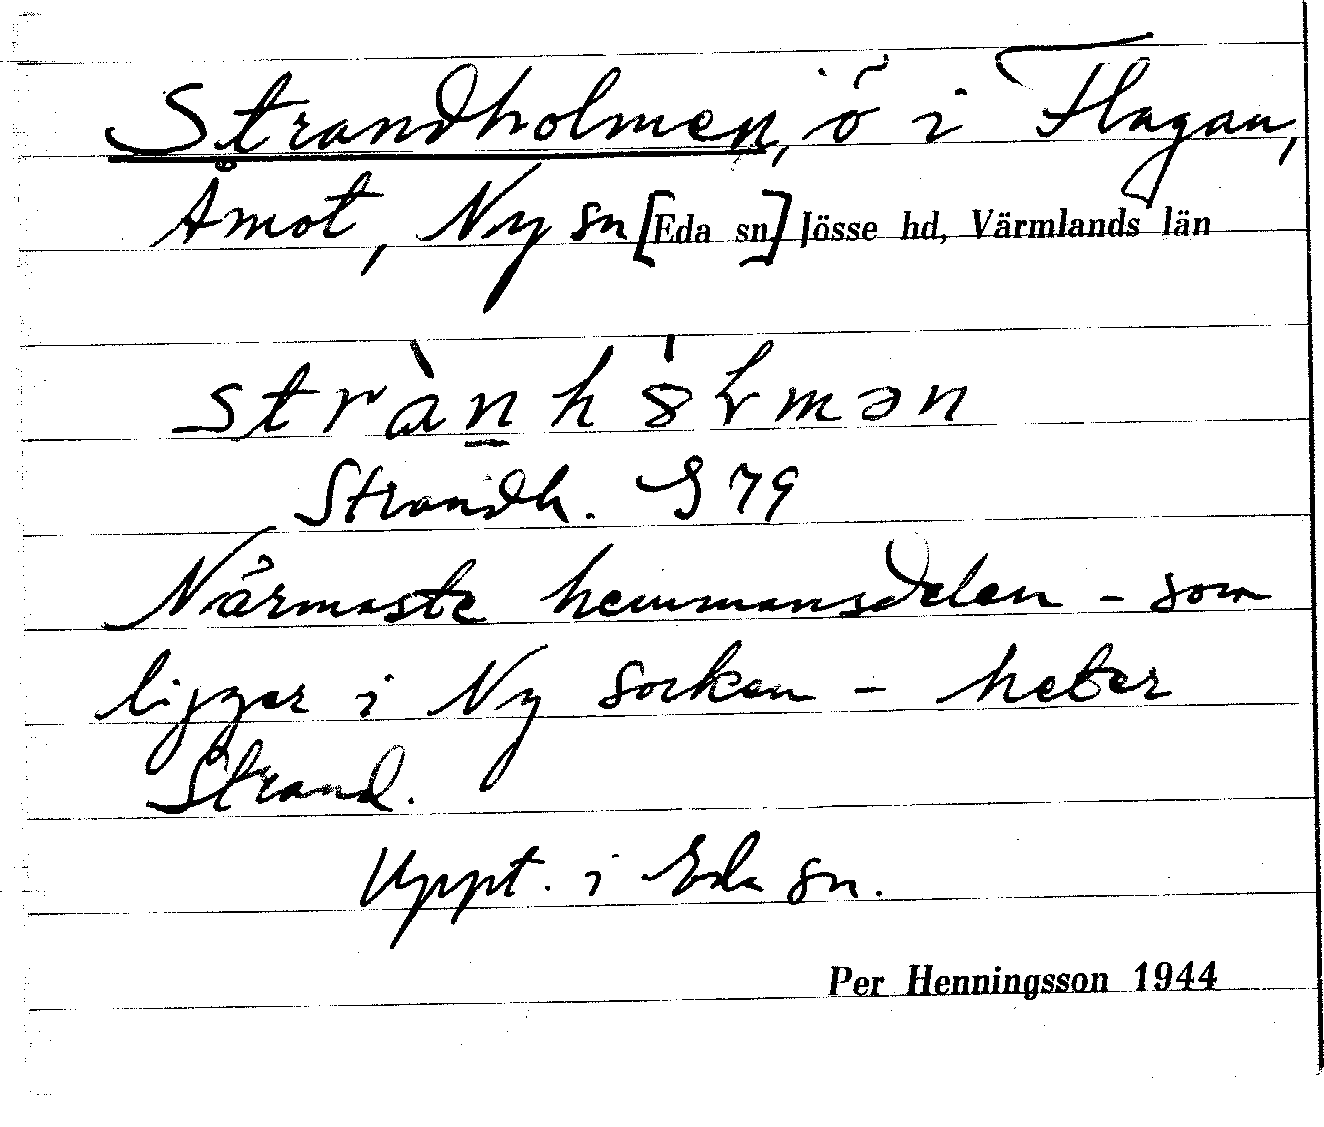 Strandholmen, ö i Flagan,
Åmot, Ny sn [Eda sn] Jösse hd, Värmlands län
strànhȯ́lmən
Strandh. G 79
Närmaste hemmansdelen - som
ligger i Ny socken - heter
Strand.
Uppt. i Eda sn.
Per Henningsson 1944